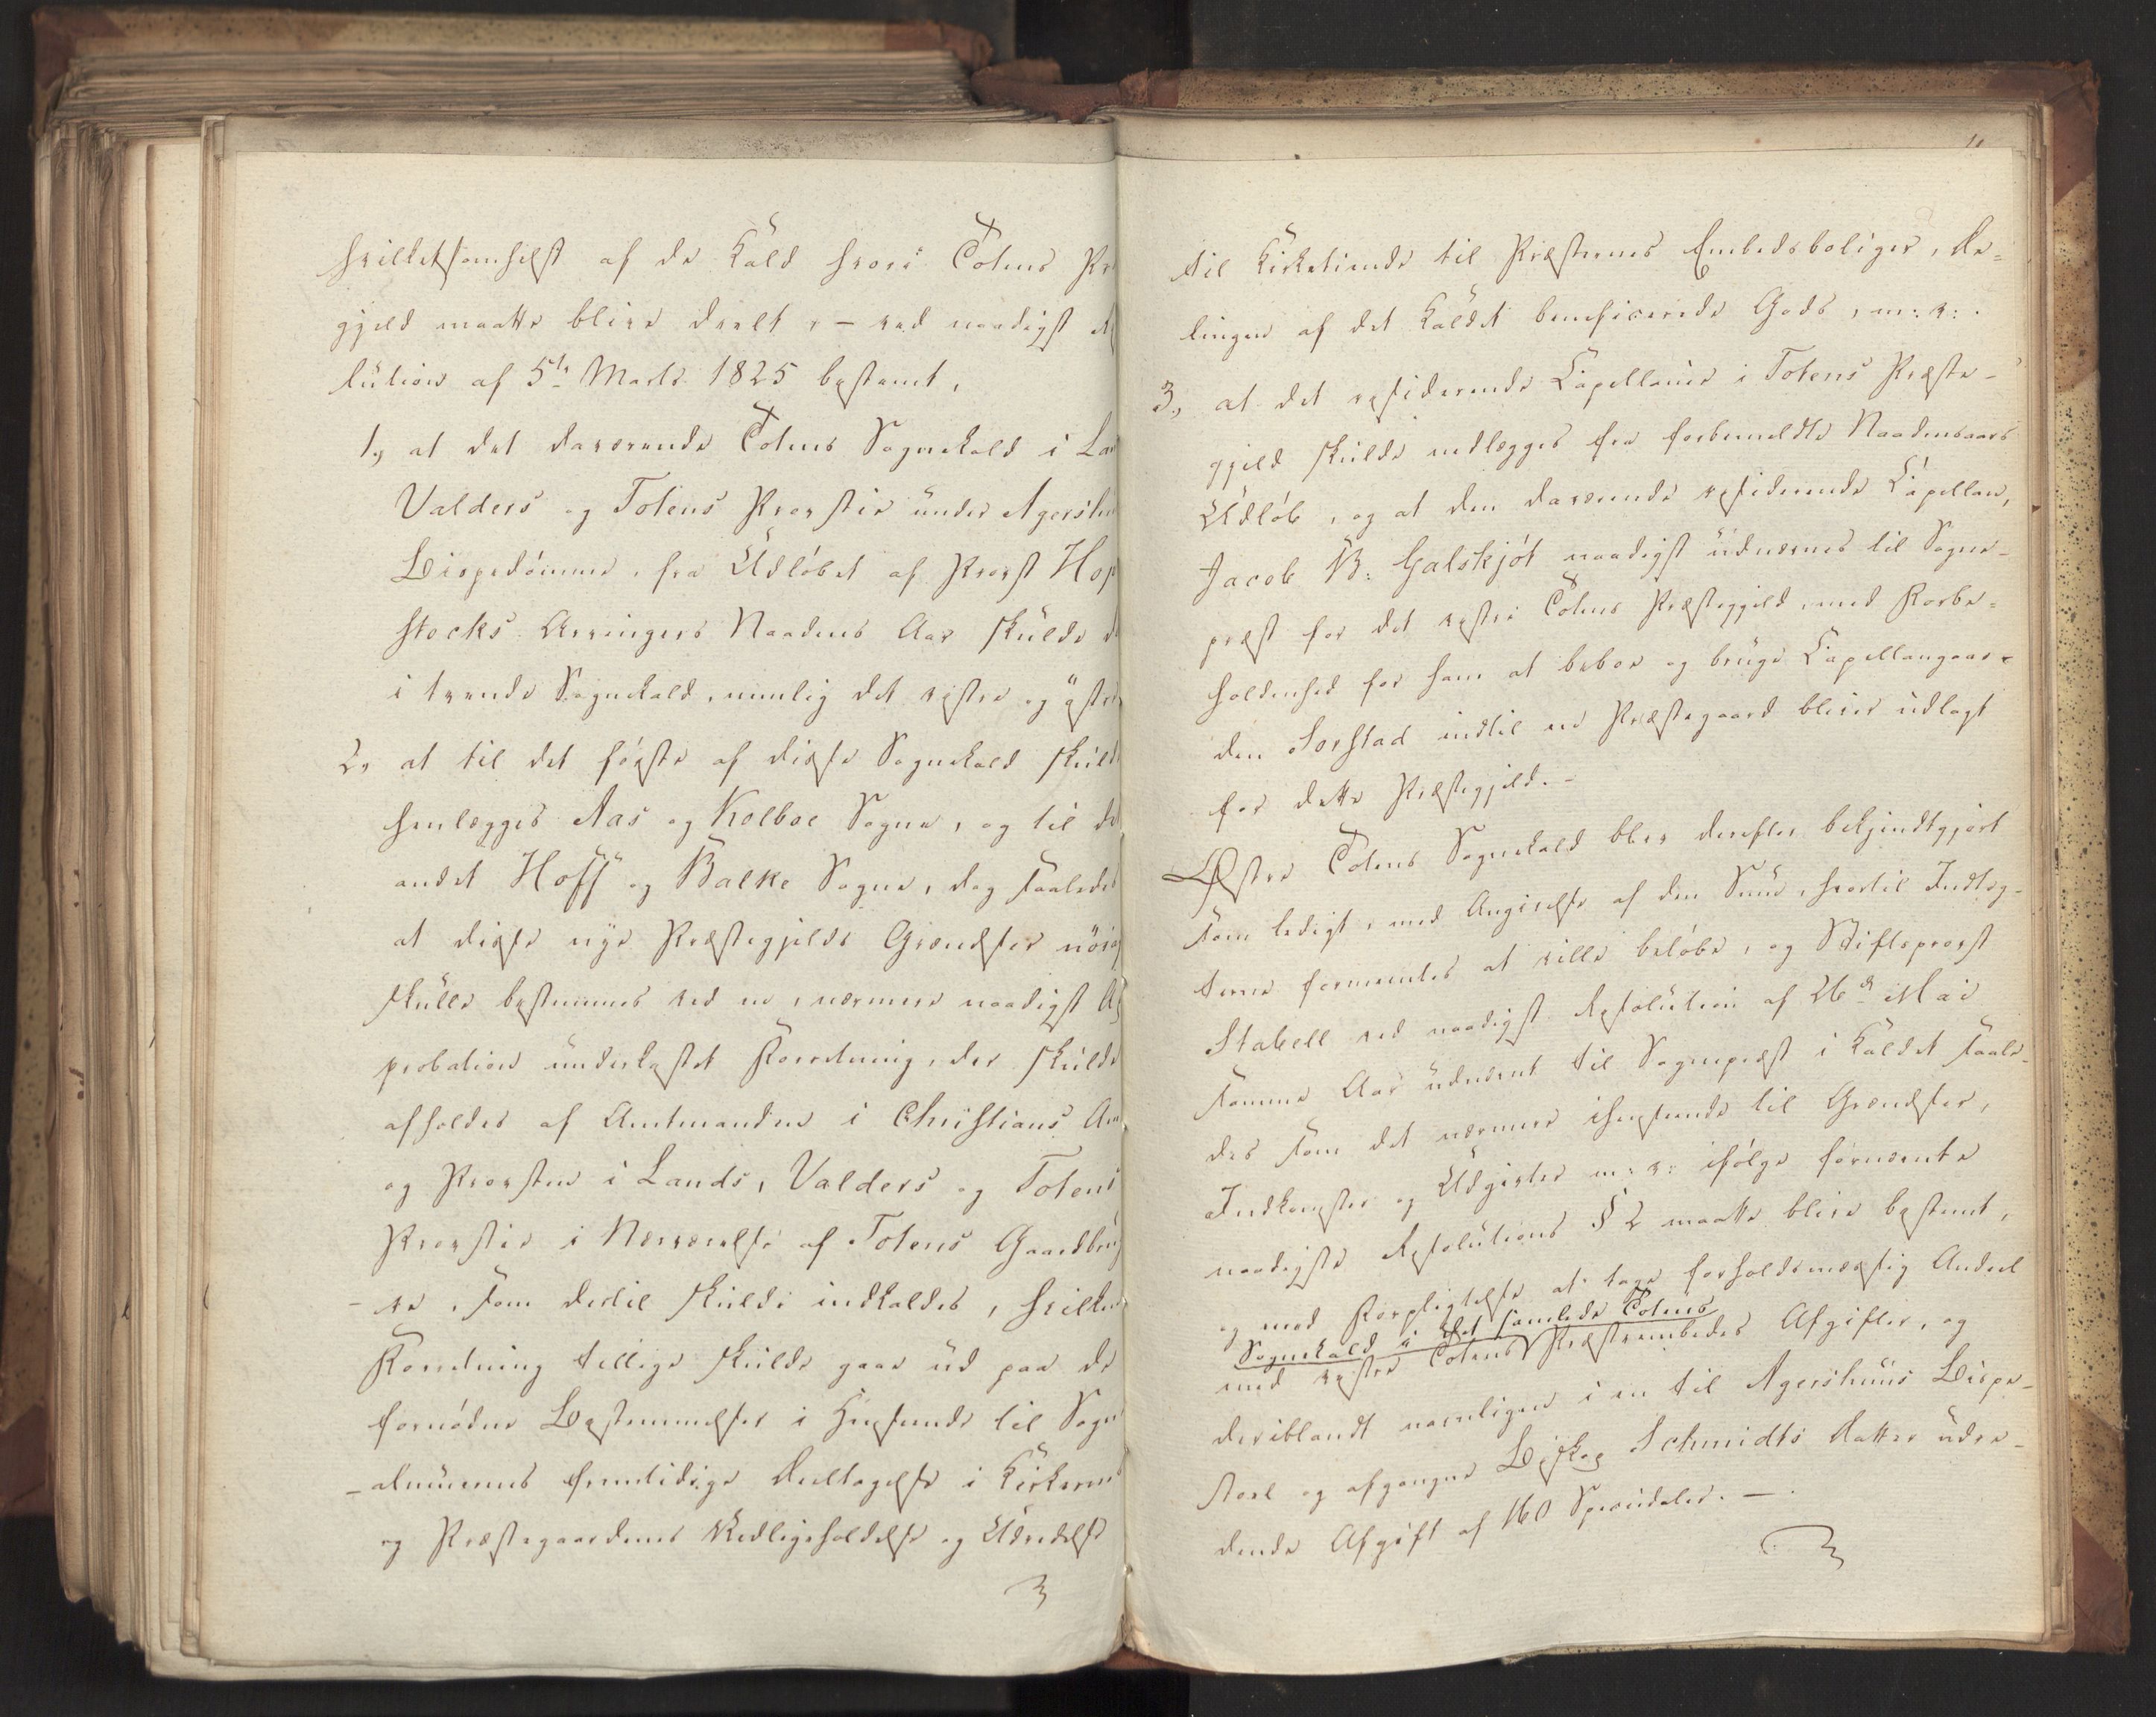 hvilketsomhelst af de Kald hvori Totens Præ
gjeld maatte blive deelt, - ved naadigst Re
lution af 5te Marts 1825 bestemt,
1, at det daværende Totens Sognekald i Lan
Valders og Totens Provstie under Agershu
Bispedömme, fra Udlöbet af Provst Hop
stocks Arvingers Naadens Aar skulde de
i tvende Sognekald, nemlig det vestre og östre
2, at til det förste af disse Sognekald skuld
henlægges Aas og Kolboe Sogne, og til de
andet Hoff og Balke Sogne, dog saaledes
at disse nye Præstegjelds Grændser nöiag
skulle bestemmes ved en, nærmere naadigst Ap
probation underkastet Forretning, der skulde
afholdes af Amtmanden i Christians Am
og Provsten i Lands, Valders og Totens
Provstie i Nærværelse af Totens Gaardbrug
- re, som dertil skulde indkaldes, hvilken
Forretning tillige skulde gaae ud paa de
fornödne Bestemmelser i Henseende til Sogn
- almuernes fremtidige Deeltagelse i Kirkernes
og Præstegaardenes Vedligeholdelse og Udredelse
til Kirketiende til Præsternes Embedsboliger, De-
lingen af det Kaldet beneficerede Gods, m: v: .
3, at det residerende Capellanie i Totens Præste-
gjeld skulde nedlægges fra forbemeldte Naadensaars
Udlöb, og at den daværende residerende Capellan,
Jacob B: Galskjöt naadigst udnævnes til Sogne-
præst for det vestre Totens Præstegjeld, med Forbe-
holdenhed for ham at beboe og bruge Capellangaar-
den Sorstad indtil en Præstegaard bliver udlagt
for dette Præstegjeld. -
Östre Totens Sognekald blev derefter bekjendtgjort
som ledigt, med Angivelse af den Sum, hvortil Indtæg-
terne formeentes at ville belöbe, og Stiftsprovst
Stabell ved naadigst Resolution af 26de Mai
samme Aar udnævnt til Sognepræst i Kaldet saale-
des som det nærmere ihenseende til Grændser,
Indkomster og Udgivter m: v: ifölge fornævnte
naadigste Resolutions § 2 maatte blive bestemt,
og med Forpligtelse at tage forholdsmæssig Andeel
Sognekald i det samlede Totens
med vestre Totens Præsteembedes Afgifter, og
deriblandt navnligen i en til Agershuus Bispe-
stoel og afgangne Biskop Schmidts Datter udre-
dende Afgift af 160 Speciedaler. -